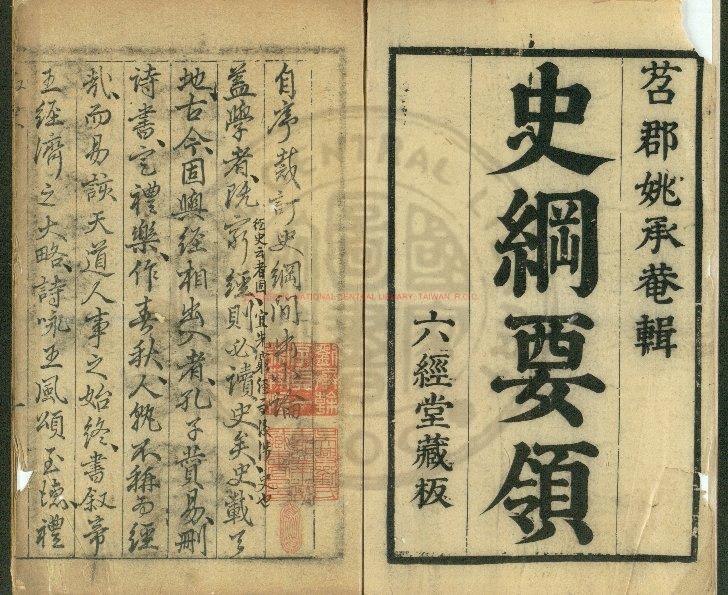 苕郡姚承菴輯
史綱要領
六經堂藏板
自序裁訂史綱間出小論
蓋學者既窮經則必讀史矣史載天
地古今固與經相出入者孔子贊易刪
詩書定禮樂作春秋人孰不稱為經
哉而易談天道人事之始終書叙帝
王經濟之大略詩咏王風頌至德禮
NATIONAL CENTRAL LIBRARY, TAIWAN, R.O.C.